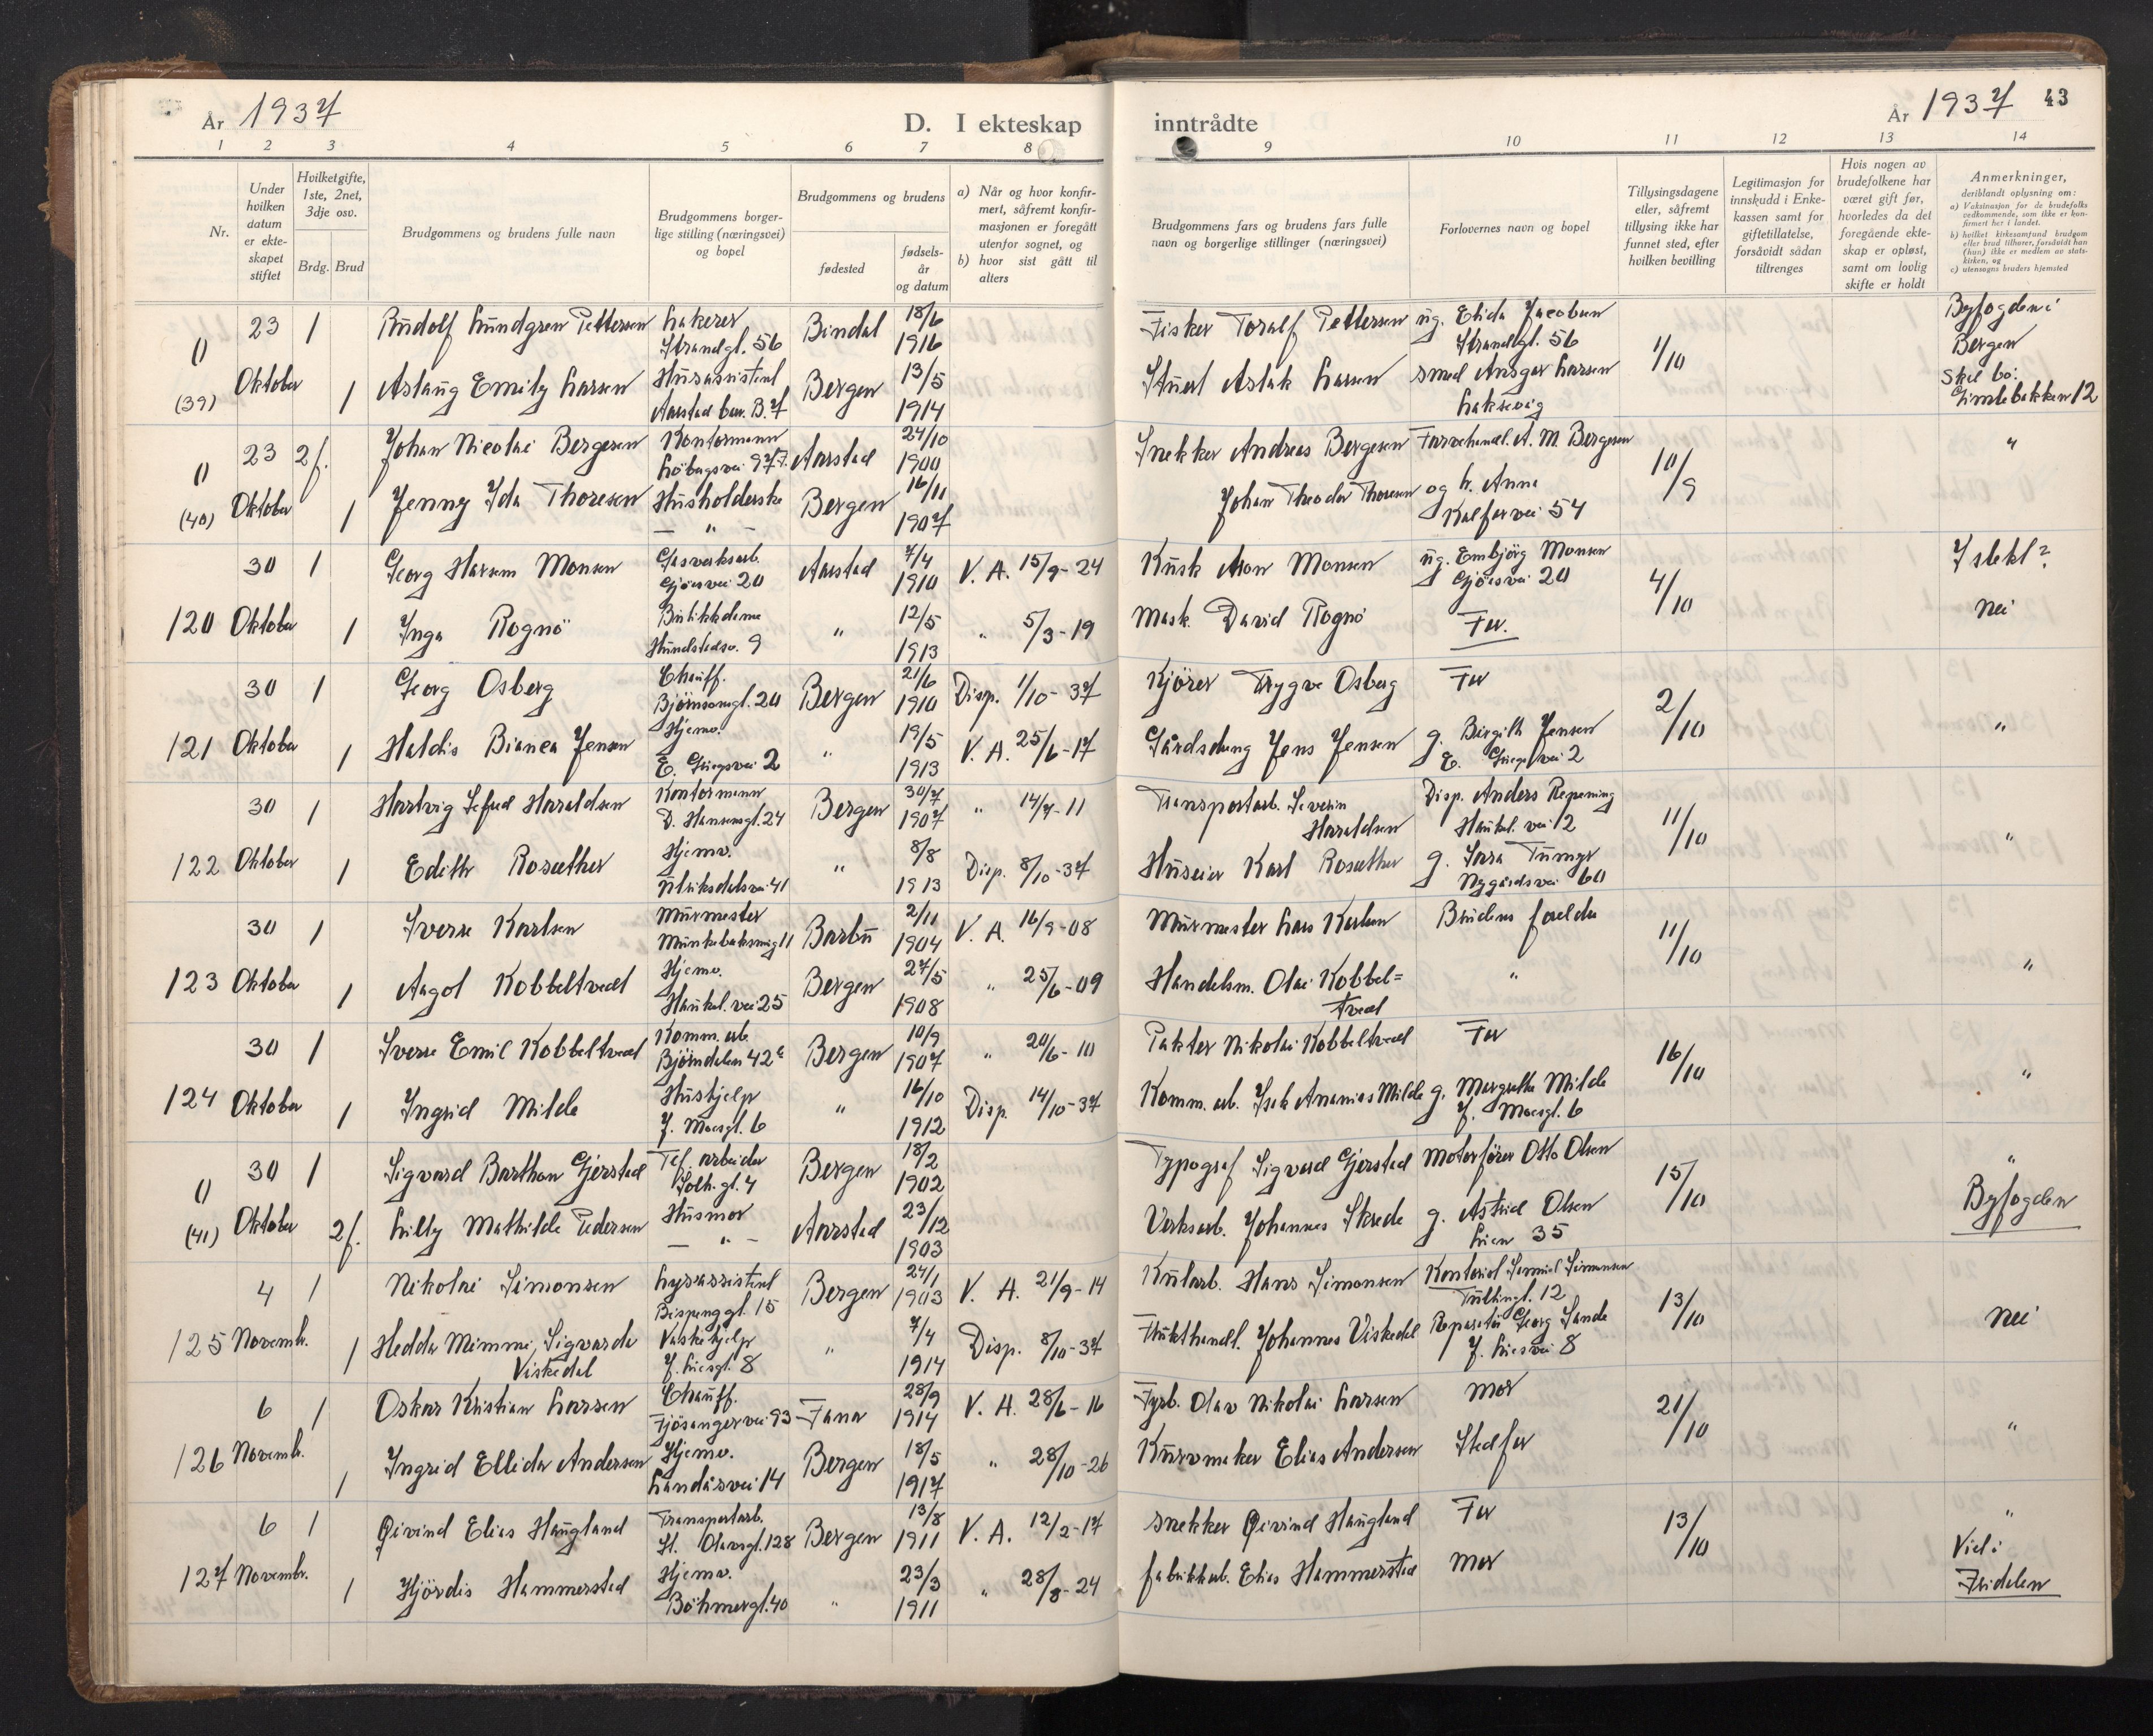 År 1937
D. I ekteskap
inntrådte
År 1937 43
1 2 3 4 5 6 7 8
9 10 11 12 13 14
Nr.
Under
hvilken
datum
er ekte-
skapet
stiftet
Hvilket gifte,
1ste, 2net,
3dje osv.
Brdg. Brud
Brudgommens og brudens fulle navn
Brudgommens borger-
lige stilling (næringsvei)
og bopel
Brudgommens og brudens
fødested
fødsels-
år
og datum
a) Når og hvor konfir-
mert, såfremt konfir-
masjonen er foregått
utenfor sognet, og
b) hvor sist gått til
alters
Brudgommens fars og brudens fars fulle
navn og borgerlige stillinger (næringsvei)
Forlovernes navn og bopel
Tillysingsdagene
eller, såfremt
tillysing ikke har
funnet sted, efter
hvilken bevilling
Legitimasjon for
innskudd i Enke-
kassen samt for
giftetillatelse,
forsåvidt sådan
tiltrenges
Hvis nogen av
brudefolkene har
været gift før,
hvorledes da det
foregående ekte-
skap er opløst,
samt om lovlig
skifte er holdt
Anmerkninger,
deriblandt oplysning om:
a) Vaksinasjon for de brudefolks
vedkommende, som ikke er kon-
firmert her i landet.
b) hvilket kirkesamfund brudgom
eller brud tilhører, forsåvidt han
(hun) ikke er medlem av stats-
kirken, og
c) utensogns bruders hjemsted
() 23 1 Rudolf Lundgren Pettersen Lakerer Bindal 18/6 Fisker Toralf Pettersen ug. Elida Jacobsen Byfogden i
Strandgt. 56 1916 Strandgt. 56 1/10 Bergen
(39) Oktober 1 Aslaug Emily Larsen Husassistent Bergen 13/5 Stuert Aslak Larsen smed Ansgar Larsen Skil bo:
Aarstad 1914 Laksevåg Gimlebakken 12
() 23 2f. Johan Nicolai Bergesen Kontormann Aarstad 24/10 Snekker Andreas Bergesen Farvehandl. A. M. Bergesen "
1900 10/9
(40) Oktober 1 Jenny Ida Thoresen Husholderske Bergen 16/11 Johan Theodor Thoresen og h. Anna
— " — 1907 Kalfarvei 54
30 1 Georg Monsen Gasverksarb. Aarstad 7/4 V. A. 15/9-24 Kusk Aron Monsen ug. Embjörg Monsen I slekt?
Gjøesvei 20 1910 Gjøesvei 20 4/10
120 Oktober 1 Inga Rognö Butikkdame " 12/5 " 5/3-19 Mask. David Rognö Far. nei
Hundstedsv. 9 1913
30 1 Georg Osberg Chauff. Bergen 21/6 Disp. 1/10-37 Kjörer Trygve Osberg Far
Björnsonsgt. 20 1910 2/10
121 Oktober 1 Haldis Bianca Jensen Hjemv. " 19/5 V. A. 25/6-17 Gårdsdreng Jens Jensen g. Birgith Jensen "
E. Griegsvei 2 1913 E. Griegsvei 2
30 1 Hartvig Haraldsen Kontormann Bergen 30/7 " 14/4-11 Transportarb. Severin Disp. Anders
D. Hansensgt. 24 1907 Haraldsen Haukel. vei 2 11/10
122 Oktober 1 Edith Rosæther Hjemv. " 8/8 Disp. 8/10-37 Huseier Karl Rosæther g. "
Ulriksdalsvei 41 1913 Nygårdsvei 60
30 1 Sverre Karlsen Murmester Barbu 2/11 V. A. 16/9-08 Murmester Lars Karlsen Brudens foreldre
Munkebotsveg 11 1904 11/10
123 Oktober 1 Aagot Kobbeltvedt Hjemv. Bergen 27/5 " 25/6-09 Handelsm. Olai Kobbel= " "
Haukel. vei 25 1908 tvedt
30 1 Sverre Emil Kobbeltvedt Komm. arb. Bergen 10/9 " 20/6-10 Pakter Nikolai Kobbeltvedt Far
Björndalen 42c 1907 16/10
124 Oktober 1 Ingrid Milde Hushjelp " 16/10 Disp. 14/10-37 Komm. arb. Isak Ananias Milde g. Margrethe Milde "
J. Moesgt. 6 1912 J. Moesgt. 6
() 30 1 Sigvard Barthon Gjersted Tlf. arbeider Bergen 18/2 Typograf Sigvard Gjersted Motorfører Otto Olsen "
Solh. gt. 4 1902 15/10
(41) Oktober 2f. Lilly Mathilde Pedersen Husmor Aarstad 23/12 Verksarb. Johannes Skrede g. Astrid Olsen Byfogden
— " — 1903 Lien 35
4 1 Nikolai Simonsen Lysassistent Bergen 24/1 V. A. 21/9-14 Kullarb. Hans Simonsen Kontorist Simonsen
Bispenggt. 15 1903 Tullingt. 12 13/10
125 Novemb. 1 Hedda Mimmi Sigvarda Vaskehjelp " 7/4 Disp. 8/10-37 Frukthandl. Johannes Viskedal Reparatør Georg Sande nei
Viskedal J. Liesgt. 8 1914 J. Liesvei 8
6 1 Oskar Kristian Larsen Chauff. Fana 28/9 V. A. 28/6-16 Fyrb. Olav Nikolai Larsen Mor
Fjösangervei 93 1914 21/10
126 Novemb. 1 Ingrid Ellida Andersen Hjemv. Bergen 18/5 " 28/10-26 Kurvmaker Elias Andersen Stedfar "
Landåsvei 14 1917
6 1 Øivind Elias Haugland Transportarb. Bergen 13/8 V. A. 12/2-17 snekker Øivind Haugland Far "
St. Olavsgt. 128 1911 13/10
127 Novembr. 1 Hjördis Hammersted Hjemv. " 23/3 " 28/8-24 fabrikkarb. Elias Hammersted Mor Vied i
Böhmergt. 40 1911 Fridalen